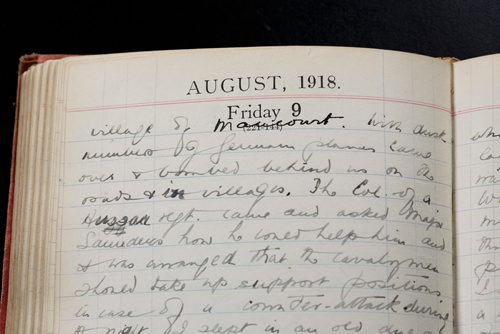 AUGUST, 1918.
Friday 9
(221-144)
village of Maucourt. With dusk
numbers of German planes came
over & bombed behind us on the
roads & in villages. The Col. of a
Hussar regt. came and asked Major
Saunders how he could help him and
it was arranged that the cavalrymen
should take up support positions
in case of a counter-attack during
night I slept in an old